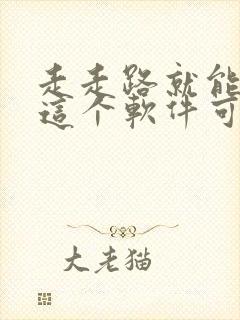 走走路就能
這个軟件可
大老猫